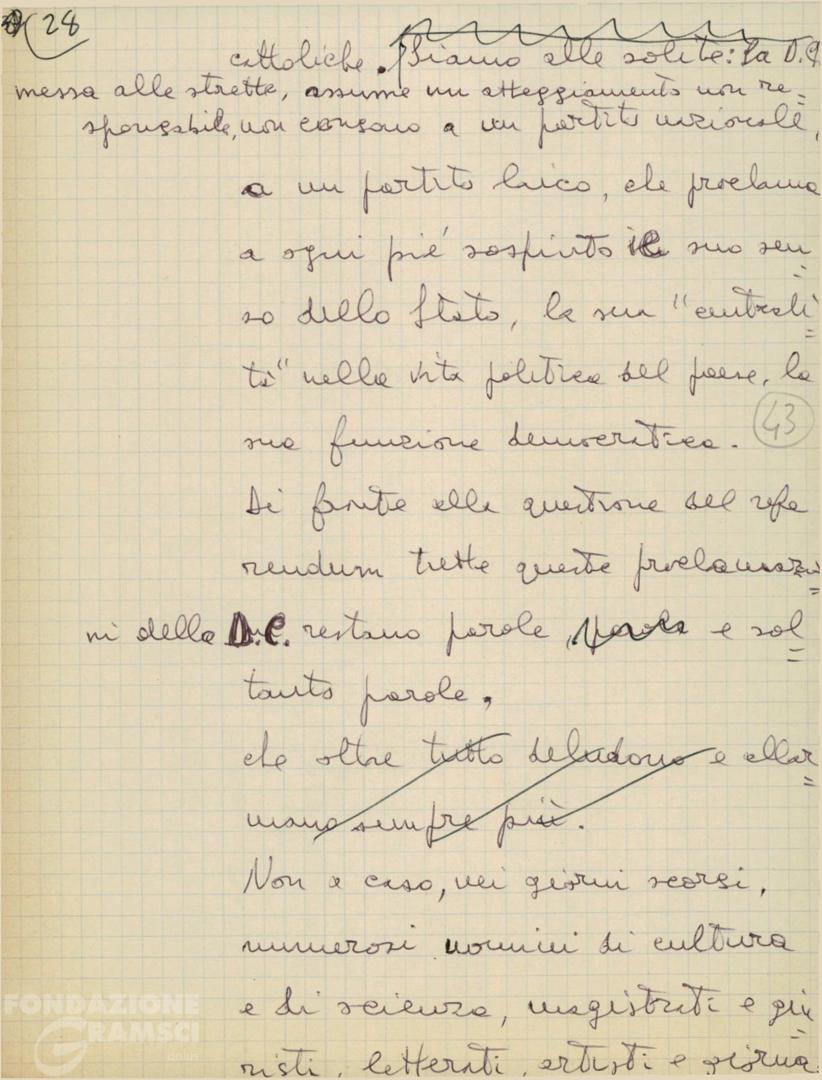 28
cattoliche. Siamo alle solite: la D.C.
messa alle strette, assume un atteggiamento non re=
sponsabile, non consono a un partito nazionale,
a un partito laico, che proclama
a ogni pié sospinto il suo sen=
so dello Stato, la sua "centrali=
tà" nella vita politica del paese, la
43
sua funzione democratica.
Di fronte alla questione del refe
rendum tutte queste proclamazio=
ni della D.C. restano parole, parole e sol=
tanto parole,
che oltre tutto deludono e allar=
mano sempre più.
Non a caso, nei giorni scorsi,
numerosi uomini di cultura
e di scienza, magistrati e giu=
risti, letterati, artisti e giorna
FONDAZIONE
GRAMSCI
onlus